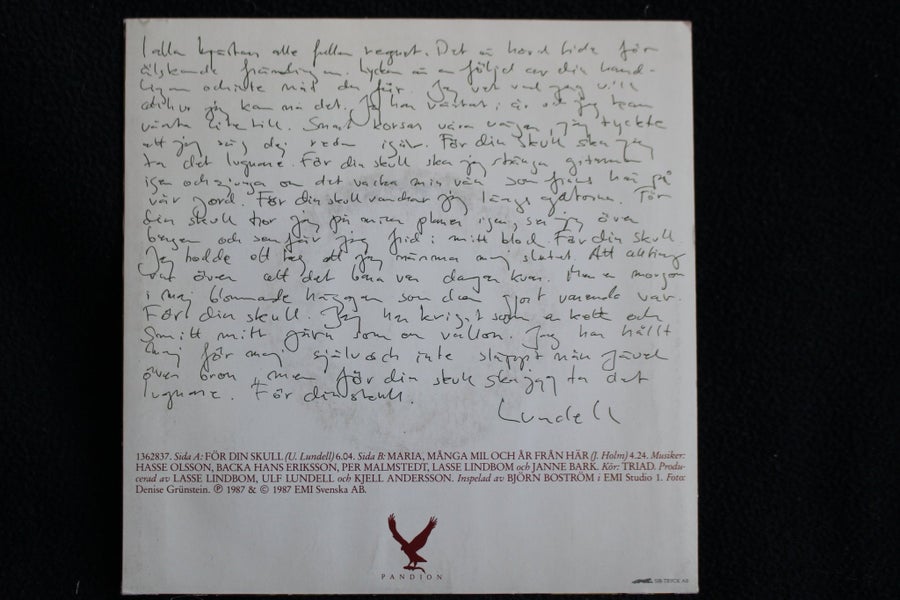 I alla kväkar alla fulla regnet. Det är hård tid för
älskande främlingen. Lyckan är en följd av din hand-
ligen och inte nåt du får. Jag vet vad jag vill
och hur jag kan nå det. Jag har väntat i år och jag kan
vänta lite till. Snart korsas våra vägar, jag tyckte
att jag såg dej redan igår. För din skull ska jag
ta det lugnare. För din skull ska jag stränga gitarren
igen och sjunga om det vackra min vän som finns här på
vår jord. För din skull vandrar jag längs gatorna. För
din skull tror jag på mina planer igen, ser jag över
bergen och sen får jag frid i mitt blod. För din skull.
Jag hade ett tag att jag närmade mej slutet. Att allting
var över att det bara var dagar kvar. Men en morgon
i maj blommade häggen som den gjort varenda vår.
För din skull. Jag har krigat som en kott och
smitt mitt järn som en vallon. Jag har hållt
mej för mej själv och inte släppt nån jävel
över bron, men för din skull ska jag ta det
lugnare. För din skull.
Lundell
1362837. Sida A: FÖR DIN SKULL (U. Lundell) 6.04. Sida B: MARIA, MÅNGA MIL OCH ÅR FRÅN HÄR (J. Holm) 4.24. Musiker:
HASSE OLSSON, BACKA HANS ERIKSSON, PER MALMSTEDT, LASSE LINDBOM och JANNE BARK. Kör: TRIAD. Produ-
cerad av LASSE LINDBOM, ULF LUNDELL och KJELL ANDERSSON. Inspelad av BJÖRN BOSTRÖM i EMI Studio 1. Foto:
Denise Grünstein. ℗ 1987 & © 1987 EMI Svenska AB.
PANDION
SIB-TRYCK AB